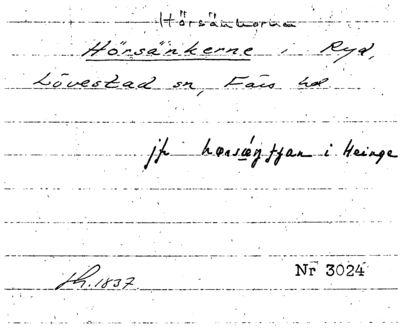 Hörsänkorna
Hörsänkerne i Ryd,
Lövestad sn, Färs hd
jfr hørsæŋ jan i Heinge
Sk. 1837
Nr 3024